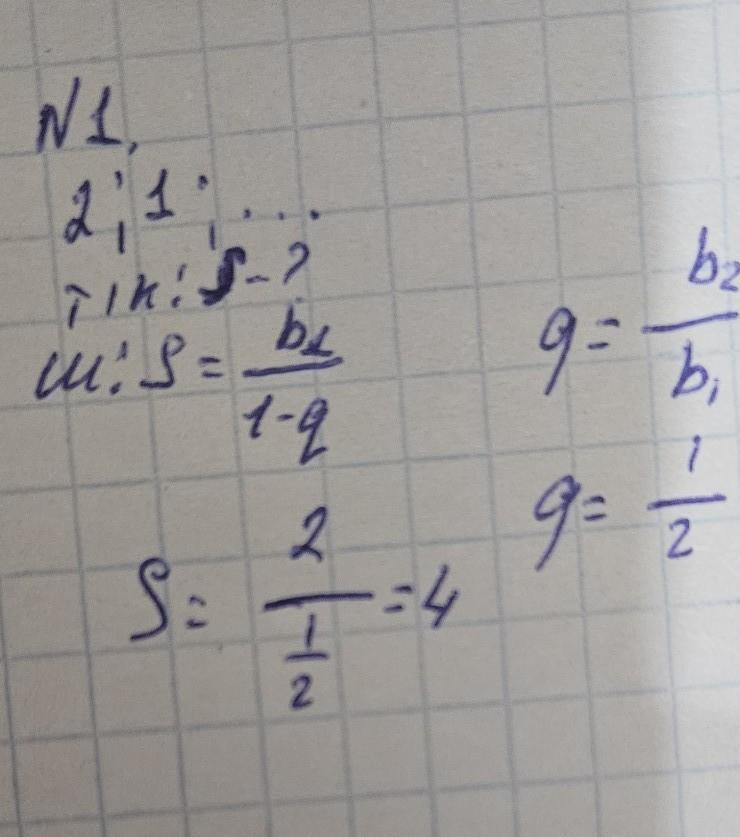 N1.
2; 1; ...
т/к: S-?
ш: S = b₁/(1-q)
q = b₂/b₁
q = 1/2
S = 2/(1/2) = 4